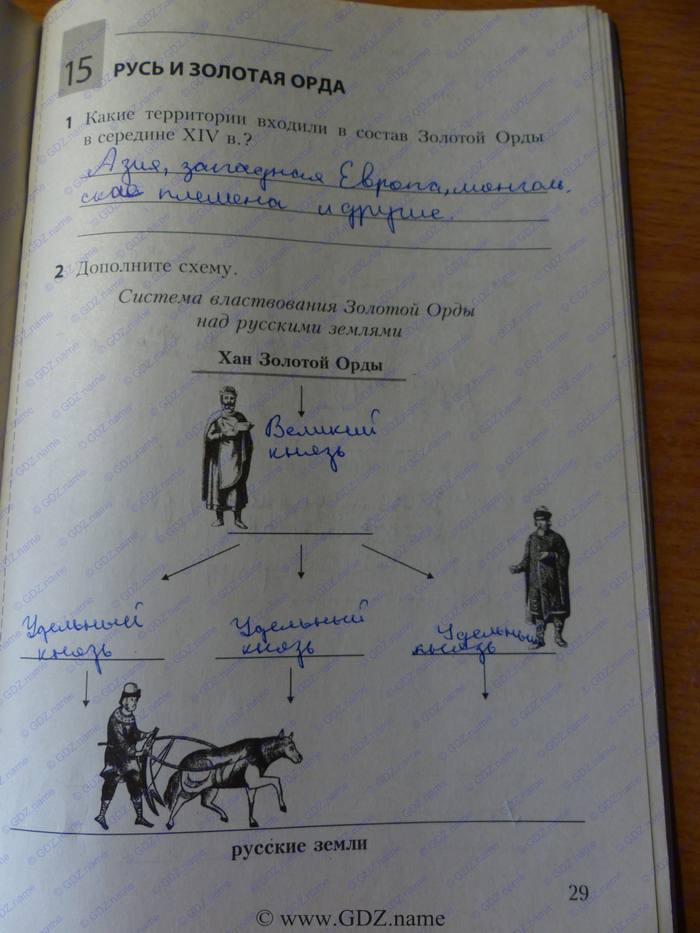 15 РУСЬ И ЗОЛОТАЯ ОРДА
1 Какие территории входили в состав Золотой Орды
в середине XIV в.?
Азия, западная Европа, монголь
ские племена и другие.
2 Дополните схему.
Система властвования Золотой Орды
над русскими землями
Хан Золотой Орды
Великий
князь
Удельный
князь
Удельный
князь
Удельный
князь
русские земли
29
© www.GDZ.name